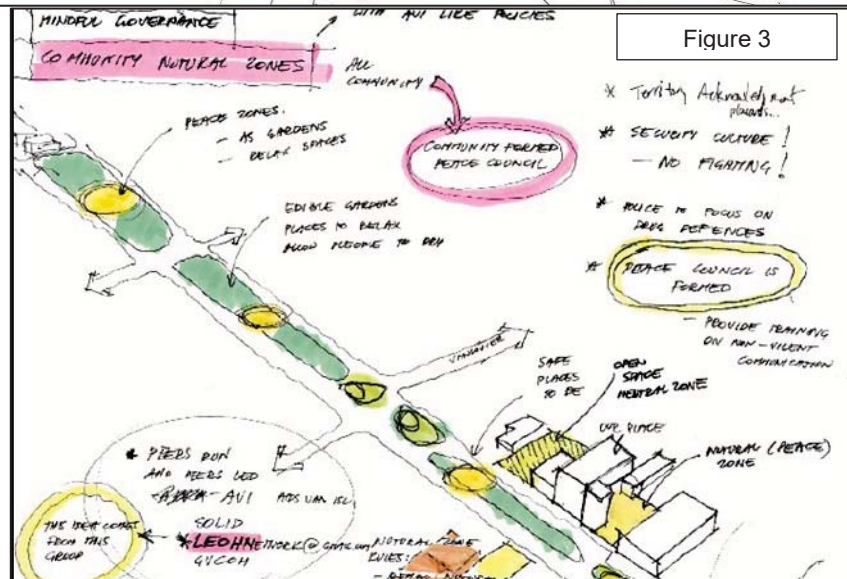 MINDFUL GOVERNANCE
WITH AVI LIKE POLICIES
COMMUNITY NATURAL ZONES
ALL
COMMUNITY
Figure 3
PEACE ZONES.
- AS GARDENS
- RELAX SPACES
COMMUNITY FORMED
PEACE COUNCIL
* Territory Acknowledgment
* SECURITY CULTURE!
- NO FIGHTING!
EDIBLE GARDENS
PLACES TO RELAX
ALLOW PEOPLE TO
* POLICE TO FOCUS ON
DRUG
* PEACE COUNCIL IS
FORMED
- PROVIDE TRAINING
ON NON-VILENT
COMMUNICATION
VANCOUVER
SAFE
PLACES
TO BE
OPEN
SPACE
NEUTRAL ZONE
OUR PLACE
NATURAL (PEACE)
ZONE
* PEERS RUN
AND PEERS LED
- AVI AIDS VAN ISL
SOLID
* LEOHNETWORK@GMAIL.COM
GVCOH
THIS IDEA COMES
FROM THIS
GROUP
NATURAL ZONE
RULES: